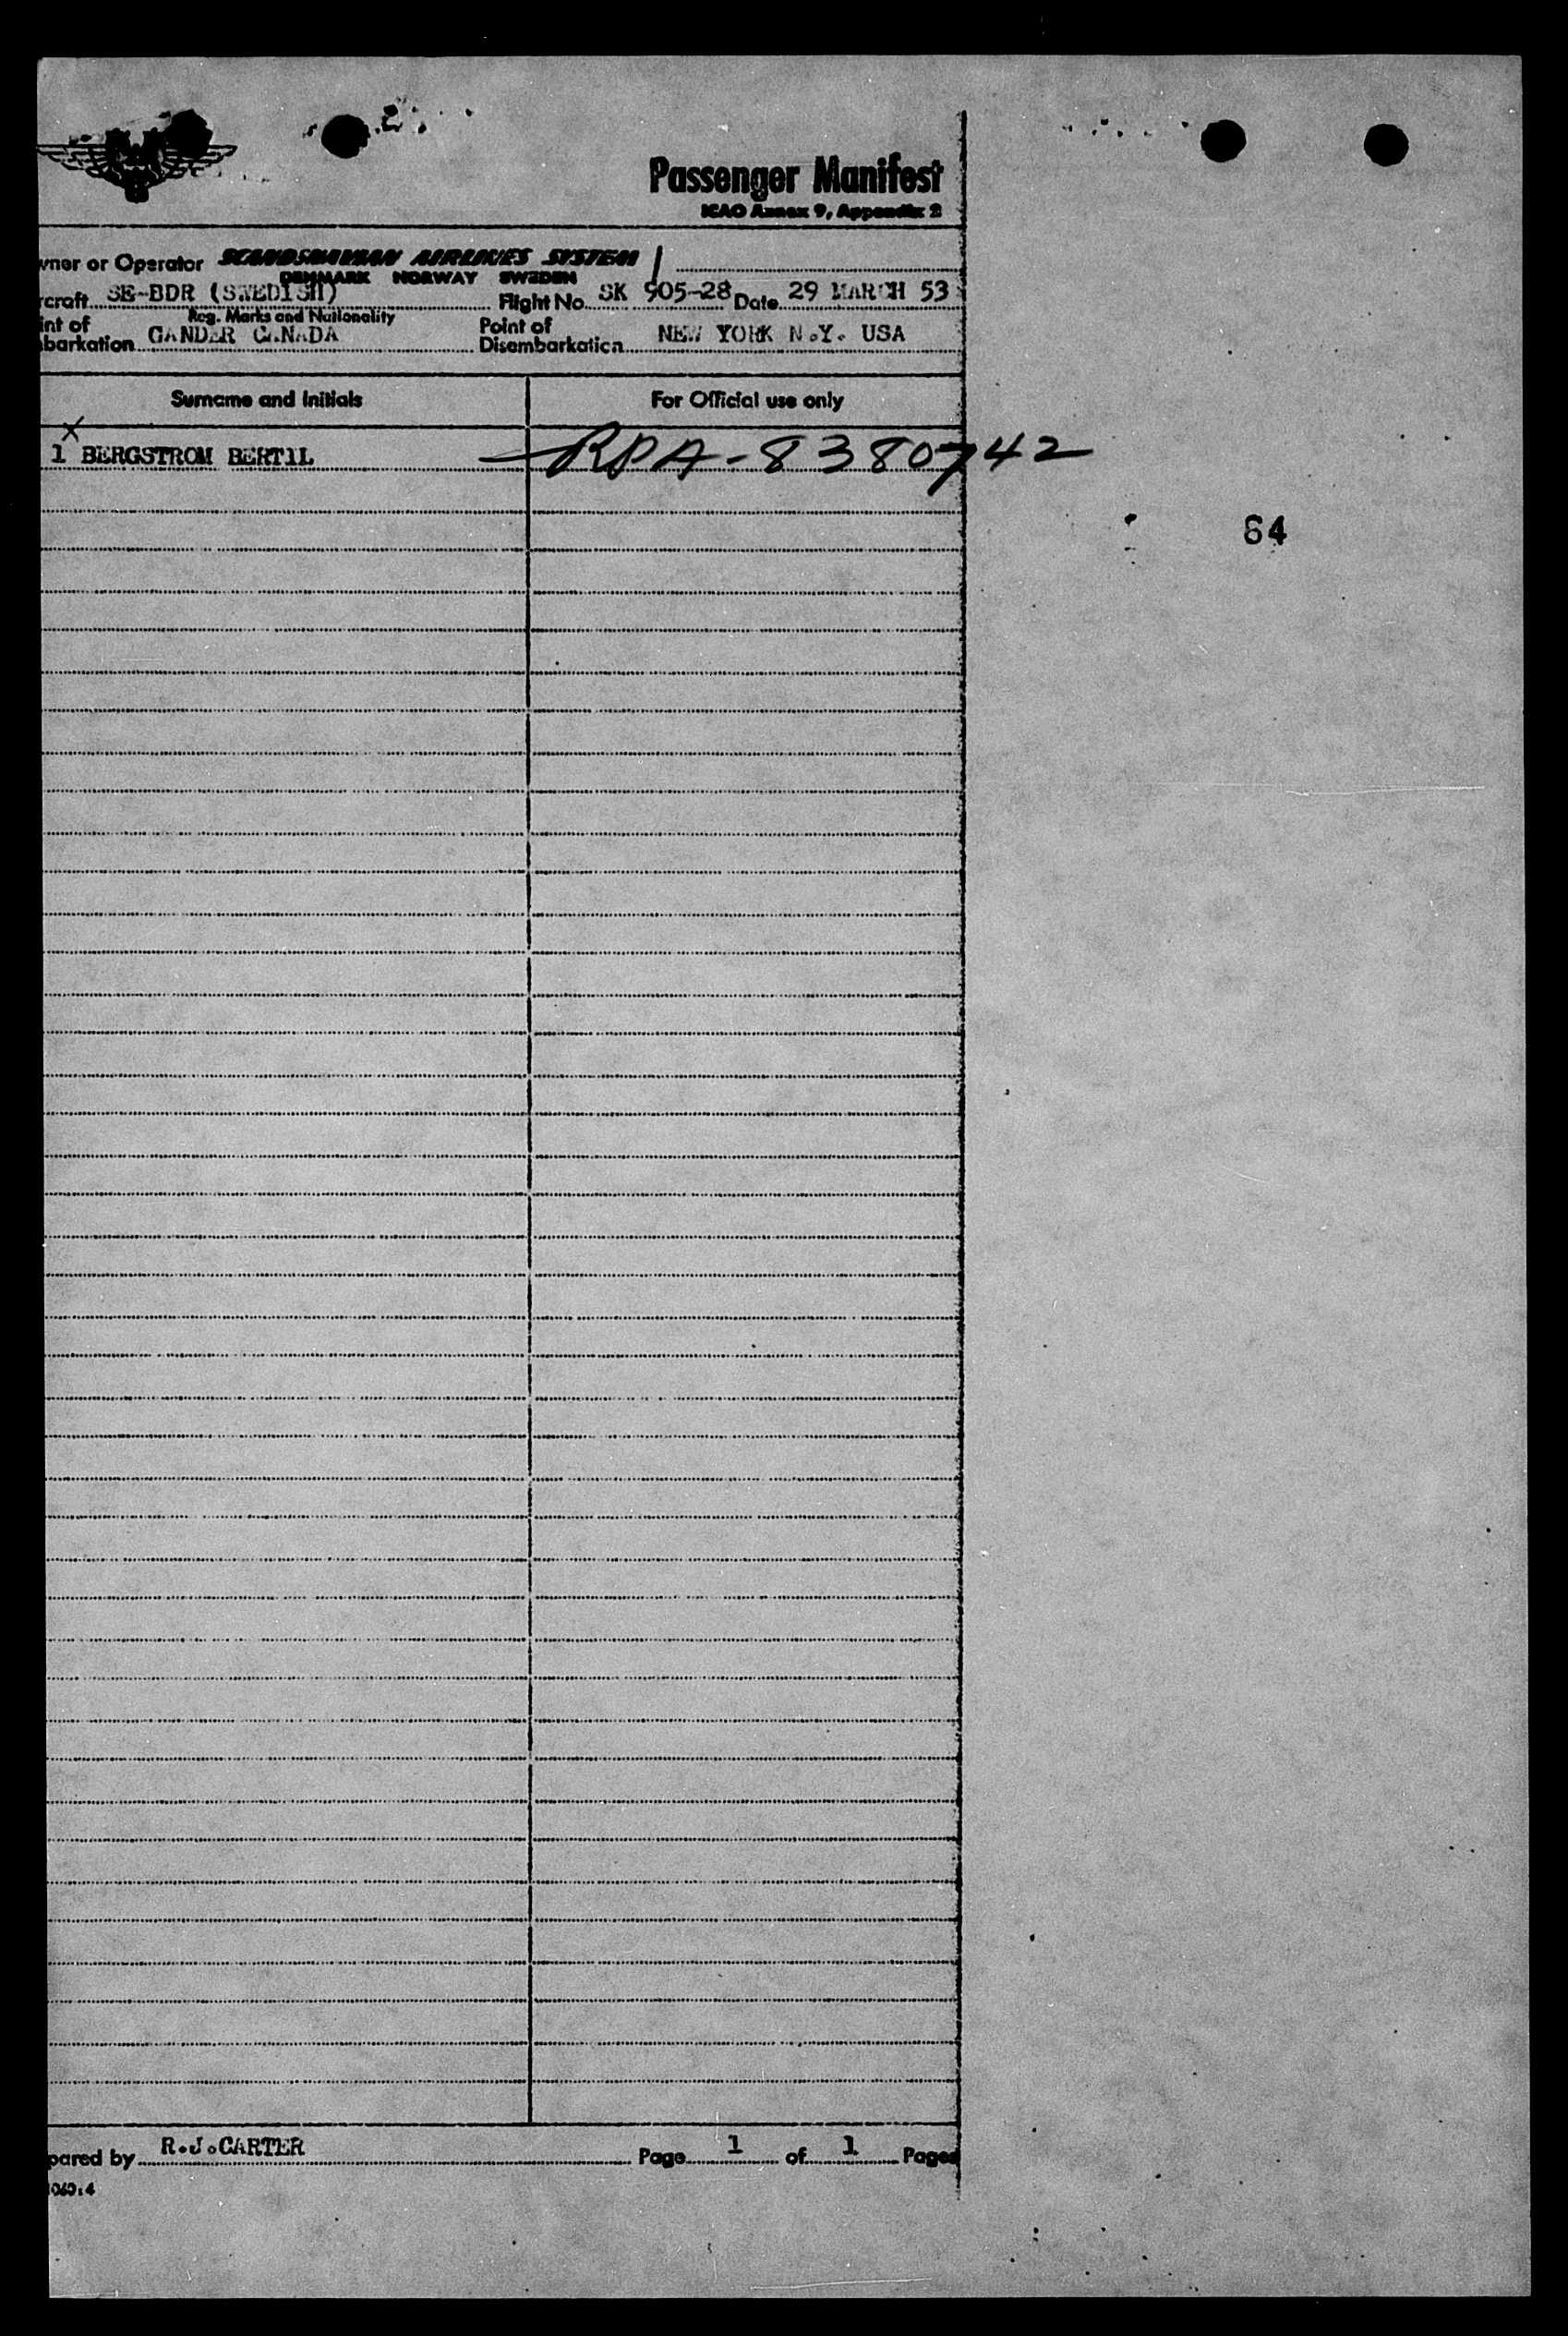 Passenger Manifest
ICAO Annex 9, Appendix 2
wner or Operator SCANDINAVIAN AIRLINES SYSTEM
DENMARK NORWAY SWEDEN
rcraft SE-BDR (SWEDISH) Flight No. SK 905-28 Date 29 MARCH 53
Reg. Marks and Nationality
int of barkation GANDER CANADA Point of Disembarkation NEW YORK N.Y. USA
Surname and Initials For Official use only
X
1 BERGSTROM BERT1L RPA-8380742
64
pared by R.J.CARTER Page 1 of 1 Pages